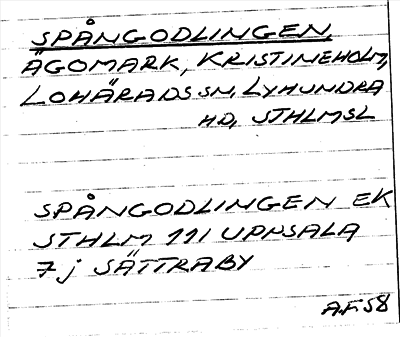 SPÅNGODLINGEN,
ÄGOMARK, KRISTINEHOLM,
LOHÄRADS SN, LYHUNDRA
HD, STHLMS L
SPÅNGODLINGEN EK
STHLM 11I UPPSALA
7j SÄTTRABY
A.F. 58